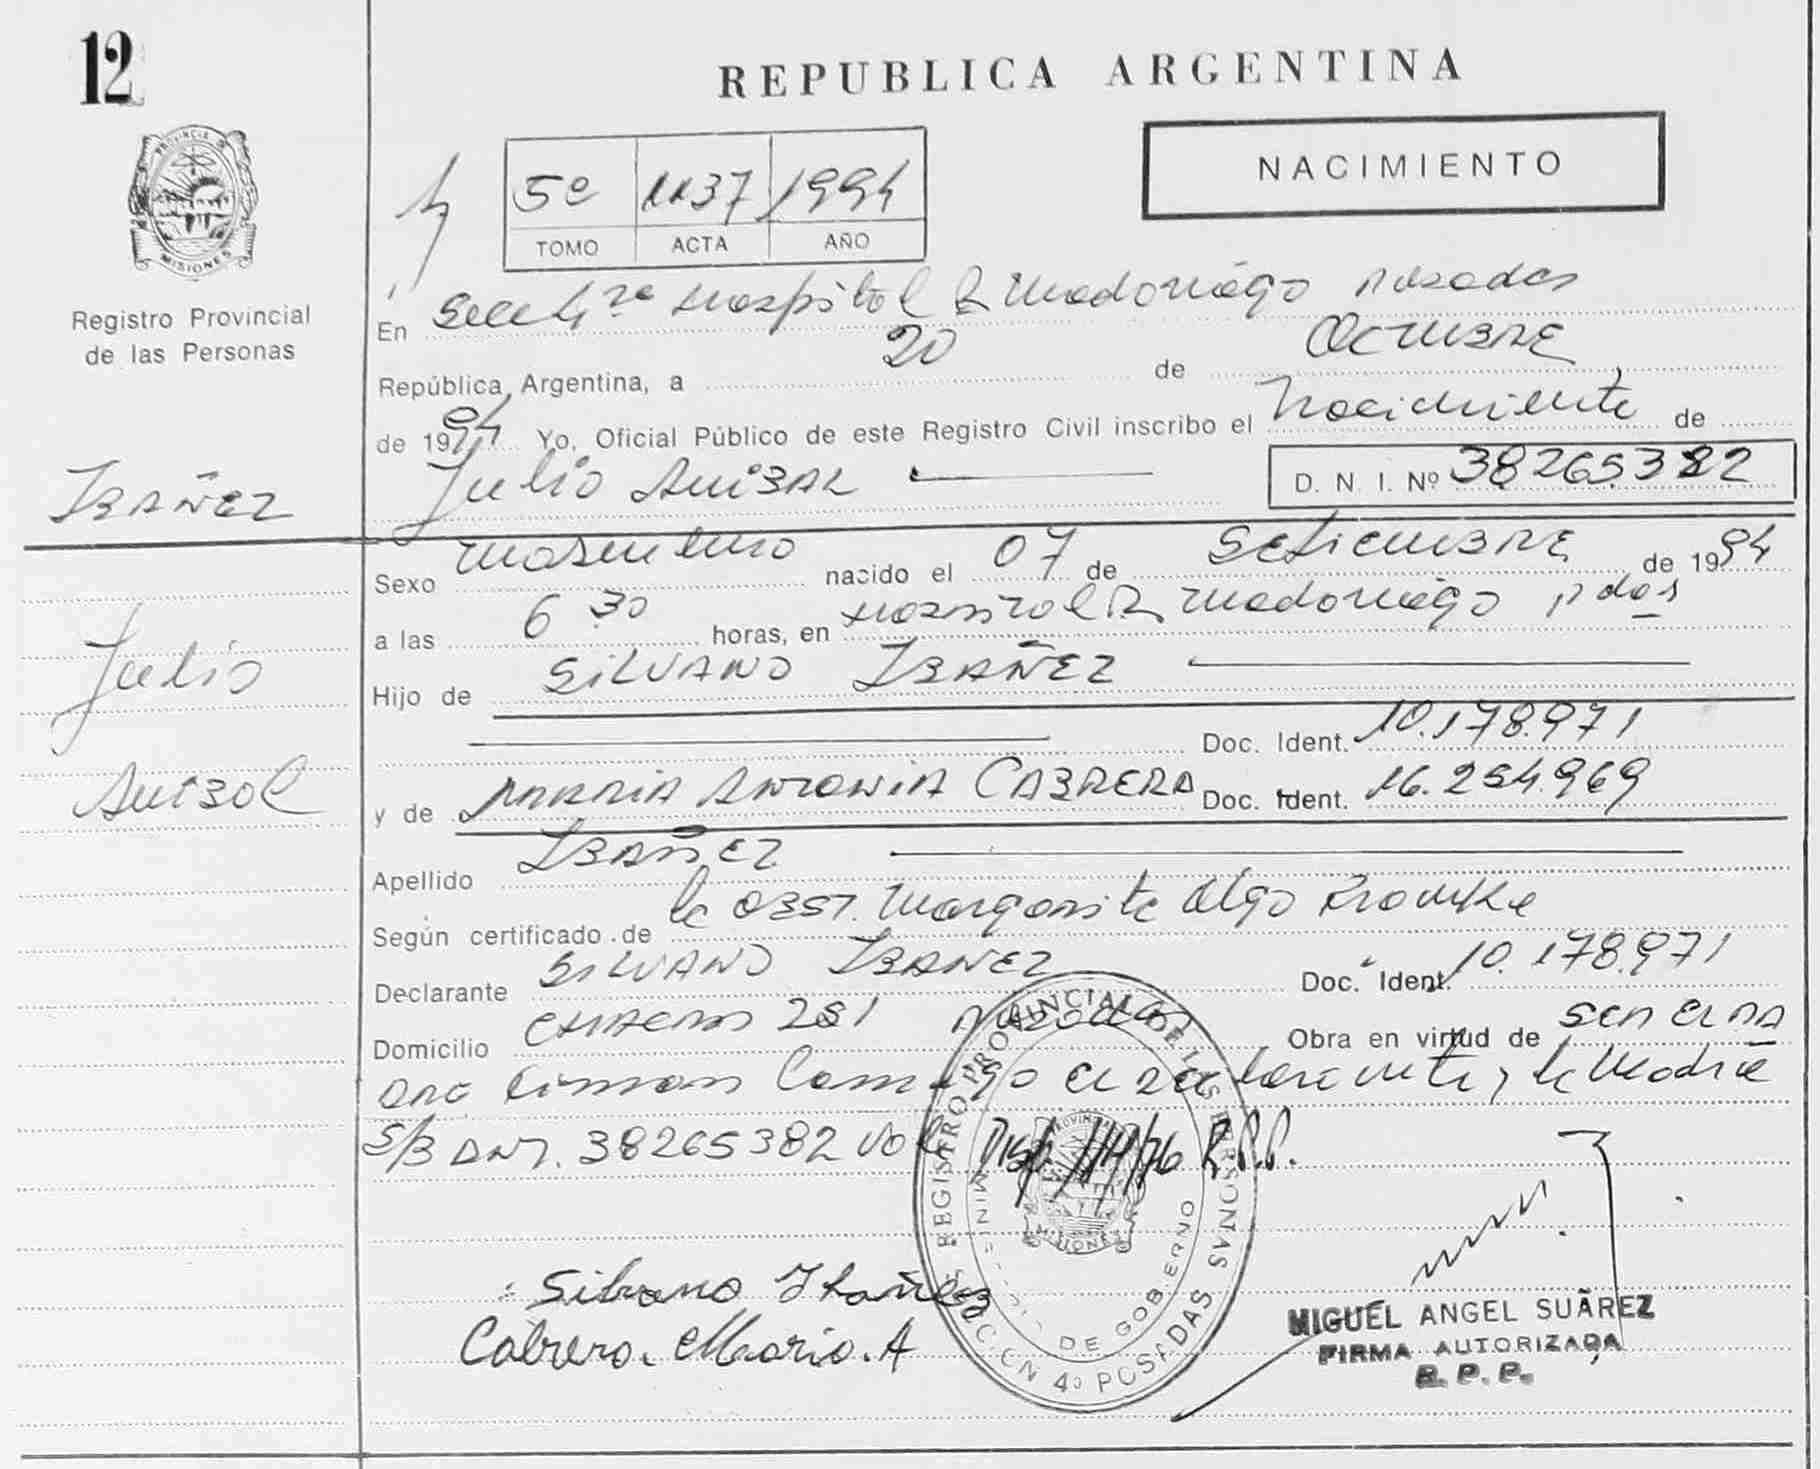 12
REPUBLICA ARGENTINA
PROVINCIA DE MISIONES
Registro Provincial
de las Personas
NACIMIENTO
5º 1137 1994
TOMO ACTA AÑO
En Secc 4ª Hospital R Madariaga Posadas
República Argentina, a 20 de OCTUBRE
de 1994 Yo, Oficial Público de este Registro Civil inscribo el Nacimiento de
IBAÑEZ
Julio ANIBAL
D. N. I. Nº 38265382
Sexo masculino nacido el 07 de SETIEMBRE de 1994
Julio
Anibal
a las 6 30 horas, en Hospital R Madariaga Pdas
Hijo de SILVANO IBAÑEZ
Doc. Ident. 10.178.971
y de MARIA ANTONIA CABRERA Doc. Ident. 16.254.969
Apellido IBAÑEZ
Según certificado de la OBST. Margarita Olga
Declarante SILVANO IBAÑEZ Doc. Ident. 10.178.971
Domicilio CHACRA 251 Posadas Obra en virtud de SER EL PA
DRE firman conmigo el declarante y la Madre
S/B DNI. 38265382 Vale Disp. R.P.P.
Silvano Ibañez
Cabrera. Maria. A
REGISTRO PROVINCIAL DE LAS PERSONAS
MINISTERIO DE GOBIERNO
SECCION 4ª POSADAS
MIGUEL ANGEL SUAREZ
FIRMA AUTORIZADA
R. P. P.